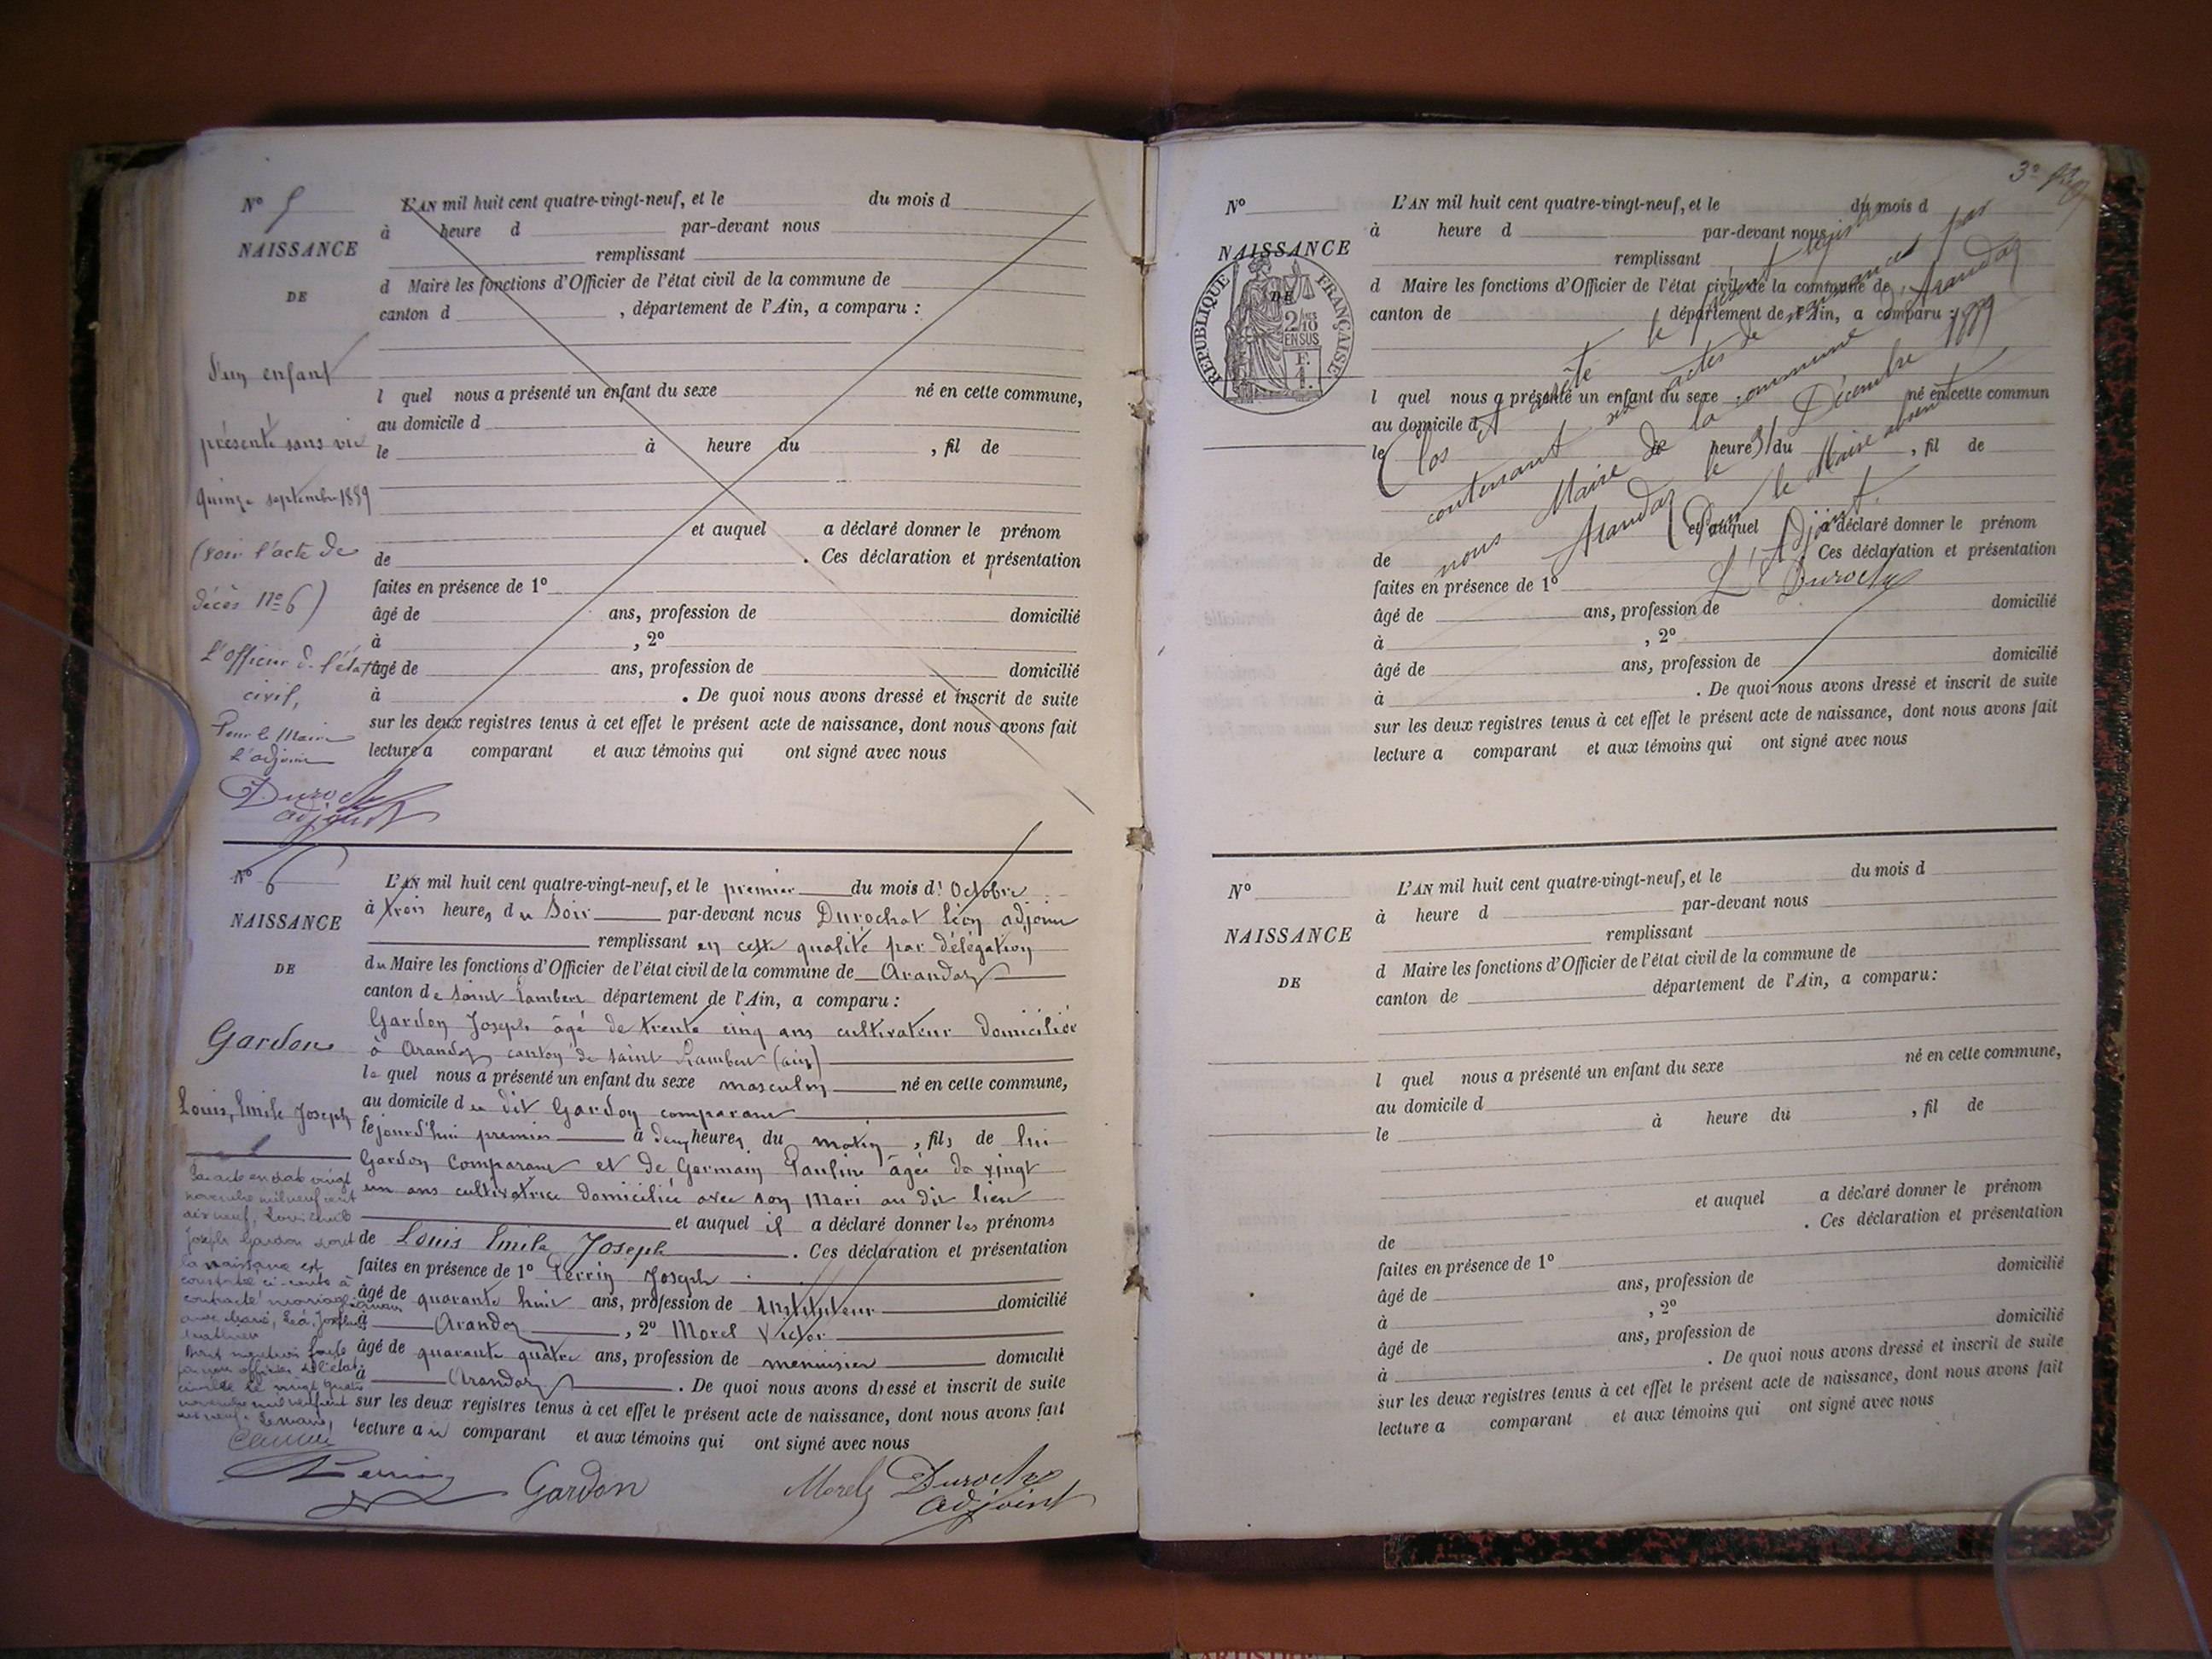 N° 5
NAISSANCE
DE
D'un enfant
présenté sans vie
quinze septembre 1889
(voir l'acte de
décès N° 6)
L'Officier de l'état
civil,
Pour le Maire
L'adjoint
Durochat
adjoint
L'AN mil huit cent quatre-vingt-neuf, et le du mois d
à heure d par-devant nous
remplissant
d Maire les fonctions d'Officier de l'état civil de la commune de
canton d , département de l'Ain, a comparu :
l quel nous a présenté un enfant du sexe né en cette commune,
au domicile d
le à heure du , fil de
et auquel a déclaré donner le prénom
de . Ces déclaration et présentation
faites en présence de 1°
âgé de ans, profession de domicilié
à , 2°
âgé de ans, profession de domicilié
à . De quoi nous avons dressé et inscrit de suite
sur les deux registres tenus à cet effet le présent acte de naissance, dont nous avons fait
lecture a comparant et aux témoins qui ont signé avec nous
N° 6
NAISSANCE
DE
Gardon
Louis, Emile Joseph
Par acte en date vingt
novembre mil neuf cent
dix neuf, Louis Emile
Joseph Gardon dont
la naissance est
constatée ci-contre à
contracté mariage
avec Marie, Léa, Joséphine
faite
par nous officier de l'état
civil le vingt quatre
novembre mil neuf cent
dix neuf. Le maire,
L'AN mil huit cent quatre-vingt-neuf, et le premier du mois d' Octobre
à trois heures du Soir par-devant nous Durochat Léon adjoint
remplissant en cette qualité par délégation
du Maire les fonctions d'Officier de l'état civil de la commune de Arandas
canton de Saint Rambert département de l'Ain, a comparu :
Gardon Joseph âgé de trente cinq ans cultivateur domicilié
à Arandas canton de Saint Rambert (ain)
le quel nous a présenté un enfant du sexe masculin né en cette commune,
au domicile du dit Gardon comparant
le jourd'hui premier à deux heures du matin , fils de lui
Gardon Comparant et de Germain Pauline âgée de vingt
un ans cultivatrice domiciliée avec son mari au dit lieu
et auquel il a déclaré donner les prénoms
de Louis Emile Joseph . Ces déclaration et présentation
faites en présence de 1° Perrin Joseph
âgé de quarante huit ans, profession de Instituteur domicilié
à Arandas , 2° Morel Victor
âgé de quarante quatre ans, profession de menuisier domicilié
à Arandas . De quoi nous avons dressé et inscrit de suite
sur les deux registres tenus à cet effet le présent acte de naissance, dont nous avons fait
lecture au comparant et aux témoins qui ont signé avec nous
Perrin Gardon Morel Durochat
adjoint
N°
NAISSANCE
DE
REPUBLIQUE FRANÇAISE
2/10
EN SUS
F.
1.
L'AN mil huit cent quatre-vingt-neuf, et le du mois d
à heure d par-devant nous
remplissant
d Maire les fonctions d'Officier de l'état civil de la commune de
canton de département de l'Ain, a comparu :
l quel nous a présenté un enfant du sexe né en cette commun
au domicile d
le à heure du , fil de
et auquel a déclaré donner le prénom
de Ces déclaration et présentation
faites en présence de 1°
âgé de ans, profession de domicilié
à , 2°
âgé de ans, profession de domicilié
à . De quoi nous avons dressé et inscrit de suite
sur les deux registres tenus à cet effet le présent acte de naissance, dont nous avons fait
lecture a comparant et aux témoins qui ont signé avec nous
Clos et arrêté le présent registre
contenant six actes de naissances par
nous Maire de la commune d'Arandas
Arandas le 31 Décembre 1889
Pour le Maire absent
L'Adjoint.
L. Durochat
N°
NAISSANCE
DE
L'AN mil huit cent quatre-vingt-neuf, et le du mois d
à heure d par-devant nous
remplissant
d Maire les fonctions d'Officier de l'état civil de la commune de
canton de département de l'Ain, a comparu :
l quel nous a présenté un enfant du sexe né en cette commune,
au domicile d
le à heure du , fil de
et auquel a déclaré donner le prénom
de . Ces déclaration et présentation
faites en présence de 1°
âgé de ans, profession de domicilié
à , 2°
âgé de ans, profession de domicilié
à . De quoi nous avons dressé et inscrit de suite
sur les deux registres tenus à cet effet le présent acte de naissance, dont nous avons fait
lecture a comparant et aux témoins qui ont signé avec nous